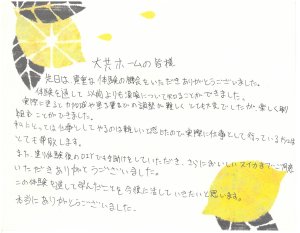 大共ホームの皆様
先日は、貴重な体験の機会をいただきありがとうございました。
体験を通して以前よりも漆喰について知ることができました。
実際に塗ると力加減や塗る量などの調整が難しく とても大変でしたが、楽しく取り
組むことができました。
私にとっては仕事としてやるのは難しいと感じたので、実際に仕事として行っている方には
とても尊敬します。
また、塗り体験後のDIYでは手助けをしていただき、さらにおいしいスイカまでご用意
いただきありがとうございました。
この体験を通して学んだことを今後に活していきたいと思います。
本当にありがとうございました。